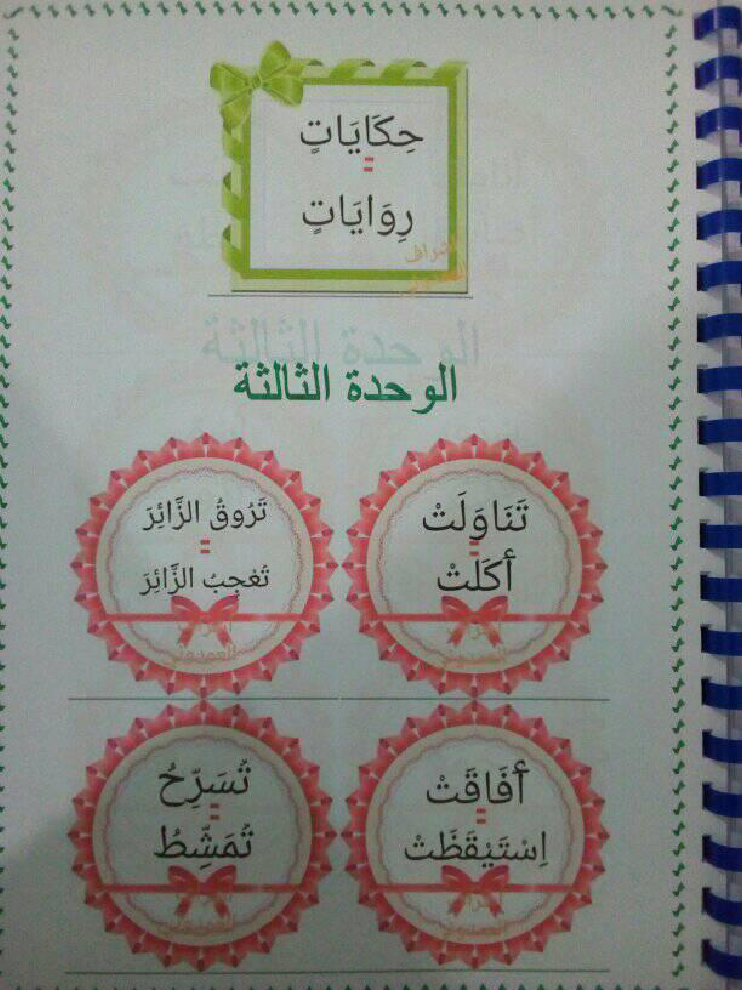 حِكَايَاتٍ
=
رِوَايَاتٍ
الوحدة الثالثة
تَنَاوَلَتْ
=
أَكَلَتْ
تَرُوقُ الزَّائِرَ
=
تُعْجِبُ الزَّائِرَ
أَفَاقَتْ
=
اِسْتَيْقَظَتْ
تُسَرِّحُ
=
تُمَشِّطُ